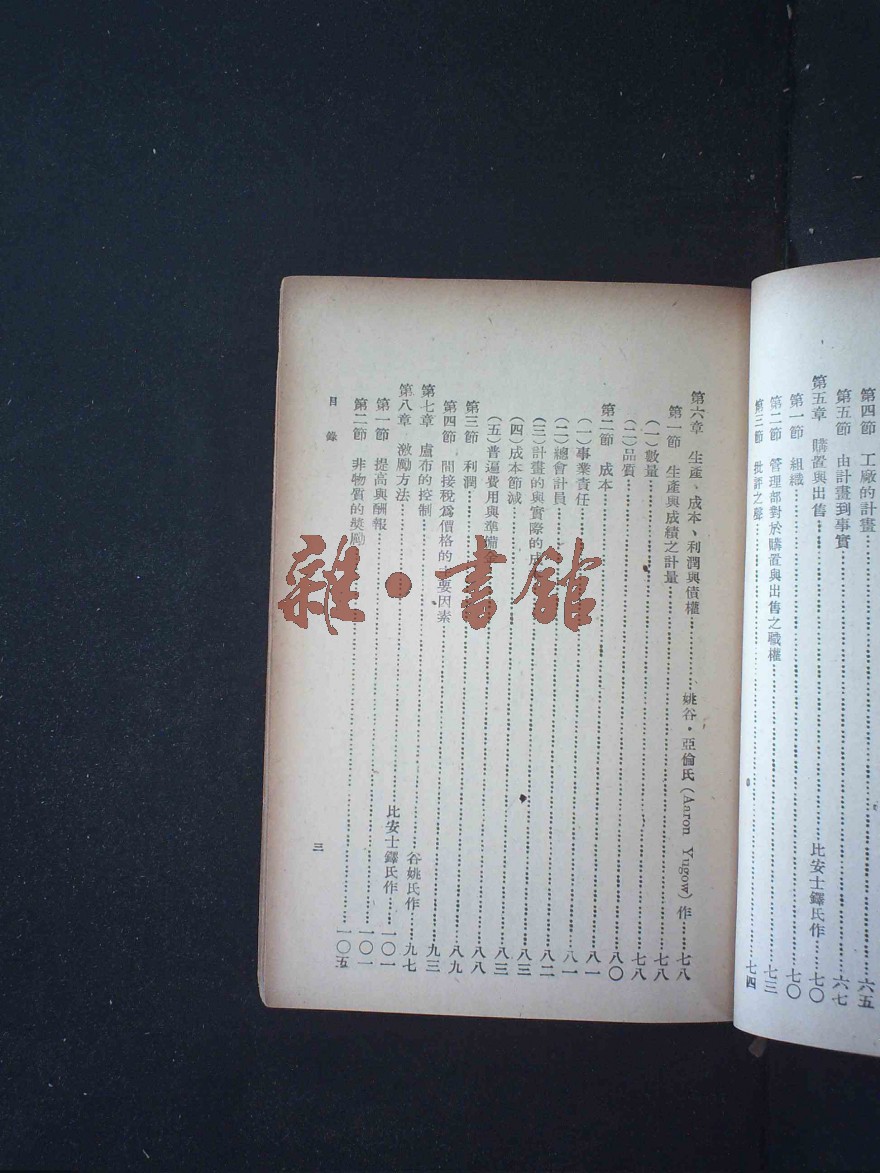 第四節 工廠的計畫……六五
第五節 由計畫到事實……六七
第五章 購置與出售……比安士鐸氏作……七〇
第一節 組織……七〇
第二節 管理部對於購置與出售之職權……七三
第三節 批評之聲……七四
第六章 生產、成本、利潤與債權……姚谷·亞倫氏(Aaron Yugow)作……七八
第一節 生產與成績之計量……七八
(一)數量……七八
(二)品質……七八
第二節 成本……八〇
(一)事業責任……八一
(二)總會計員……八一
(三)計畫的與實際的成……八二
(四)成本節減……八三
(五)普遍費用與準備……八三
第三節 利潤……八八
第四節 間接稅爲價格的主要因素……八九
第七章 盧布的控制……谷姚氏作……九三
第八章 激勵方法……比安士鐸氏作……九七
第一節 提高與酬報……一〇一
第二節 非物質的獎勵……一〇五
目錄
三
雜·書館